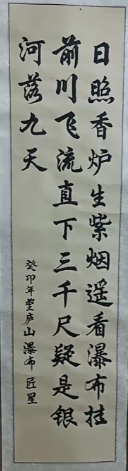 日照香炉生紫烟遥看瀑布挂
前川飞流直下三千尺疑是银
河落九天
癸卯年望庐山瀑布匠星